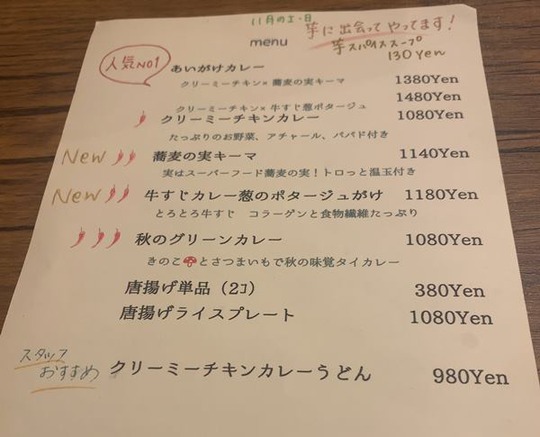 11月の土・日
芋に出会ってやってます!
芋スパイススープ
130yen
menu
人気NO1
あいがけカレー
クリーミーチキン×蕎麦の実キーマ 1380Yen
クリーミーチキン×牛すじ葱ポタージュ 1480Yen
クリーミーチキンカレー 1080Yen
たっぷりのお野菜、アチャール、パパド付き
New 蕎麦の実キーマ 1140Yen
実はスーパーフード蕎麦の実!トロっと温玉付き
New 牛すじカレー葱のポタージュがけ 1180Yen
とろとろ牛すじ コラーゲンと食物繊維たっぷり
秋のグリーンカレー 1080Yen
きのこ🍄とさつまいもで秋の味覚タイカレー
唐揚げ単品(2コ) 380Yen
唐揚げライスプレート 1080Yen
スタッフ
おすすめ
クリーミーチキンカレーうどん 980Yen